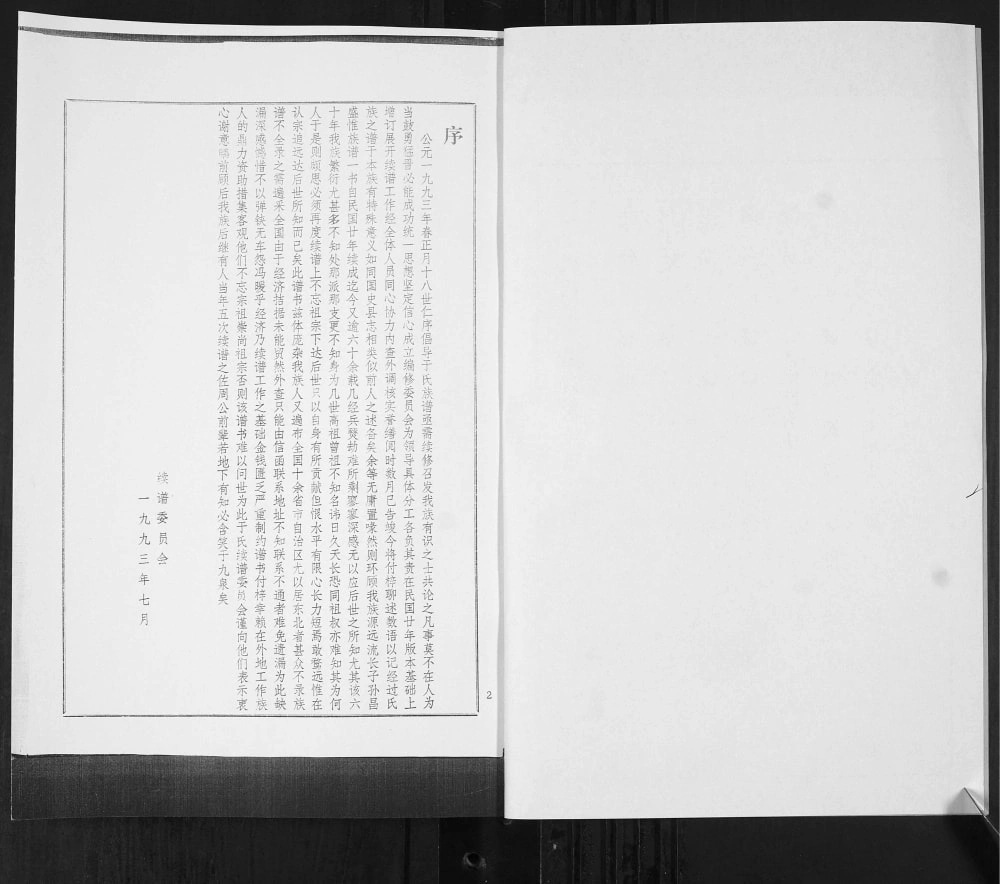 序
公元一九九三年春正月十八世仁序倡导于氏族谱亟需续修召发我族有识之士共论之凡事莫不在人为
当鼓勇猛晋必能成功统一思想坚定信心成立编修委员会为领导具体分工各负其责在民国廿年版本基础上
增订展开续谱工作经全体人员同心协力内查外调核实誊缮阅时数月已告竣今将付梓聊述数语以记经过氏
族之谱于本族有特殊意义如同国史县志相类似前人之述备矣余等无庸置喙然则环顾我族源远流长子孙昌
盛惟族谱一书自民国廿年续成迄今又逾六十余载几经兵燹劫难所剩寥寥深感无以应后世之所知尤其该六
十年我族繁衍尤甚多不知处那派那支更不知身为几世高祖曾祖不知名讳日久天长恐同祖叔亦难知其为何
人于是则顾思必须再度续谱上不忘祖宗下达后世只以自身有所贡献但恨水平有限心长力短焉敢骛远惟在
认宗追远达后世所知而已矣此谱书兹体庞杂我族人又遍布全国十余省市自治区尤以居东北者甚众不录族
谱不全录之需遍采全国由于经济拮据未能贸然外查只能由信函联系地址不知联系不通者难免遗漏为此缺
漏深感憾惜不以弹铗无车怨冯暖乎经济乃续谱工作之基础金钱匮乏严重制约谱书付梓幸赖在外地工作族
人的鼎力资助措集客观他们不忘宗祖崇尚祖宗否则该谱书难以问世为此于氏续谱委员会谨向他们表示衷
心谢意瞻前顾后我族后继有人当年五次续谱之佐周公前辈若地下有知必含笑于九泉矣
续谱委员会
一九九三年七月
2